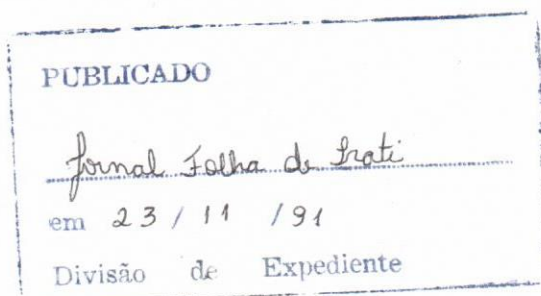 PUBLICADO
Jornal Folha de Irati
em 23 / 11 / 91
Divisão de Expediente